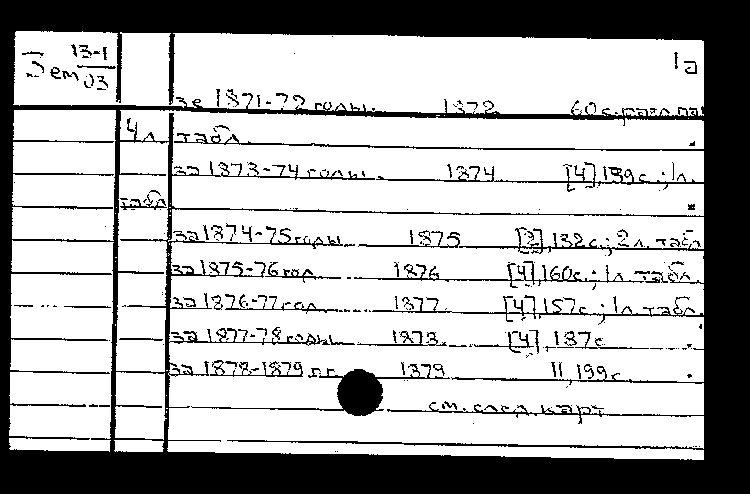 13-1
Зем 03
1а
за 1871-72 годы. 1872 60 с. разд. паг
4 л. табл.
за 1873-74 годы. 1874 [4], 139 с.; 1 л.
табл.
за 1874-75 годы 1875 [2], 132 с.; 2 л. табл
за 1875-76 год. 1876 [4], 160 с.; 1 л. табл.
за 1876-77 год. 1877 [4], 157 с.; 1 л. табл.
за 1877-78 годы 1878 [4], 187 с
за 1878-1879 гг. 1879 II, 199 с.
см. след. карт